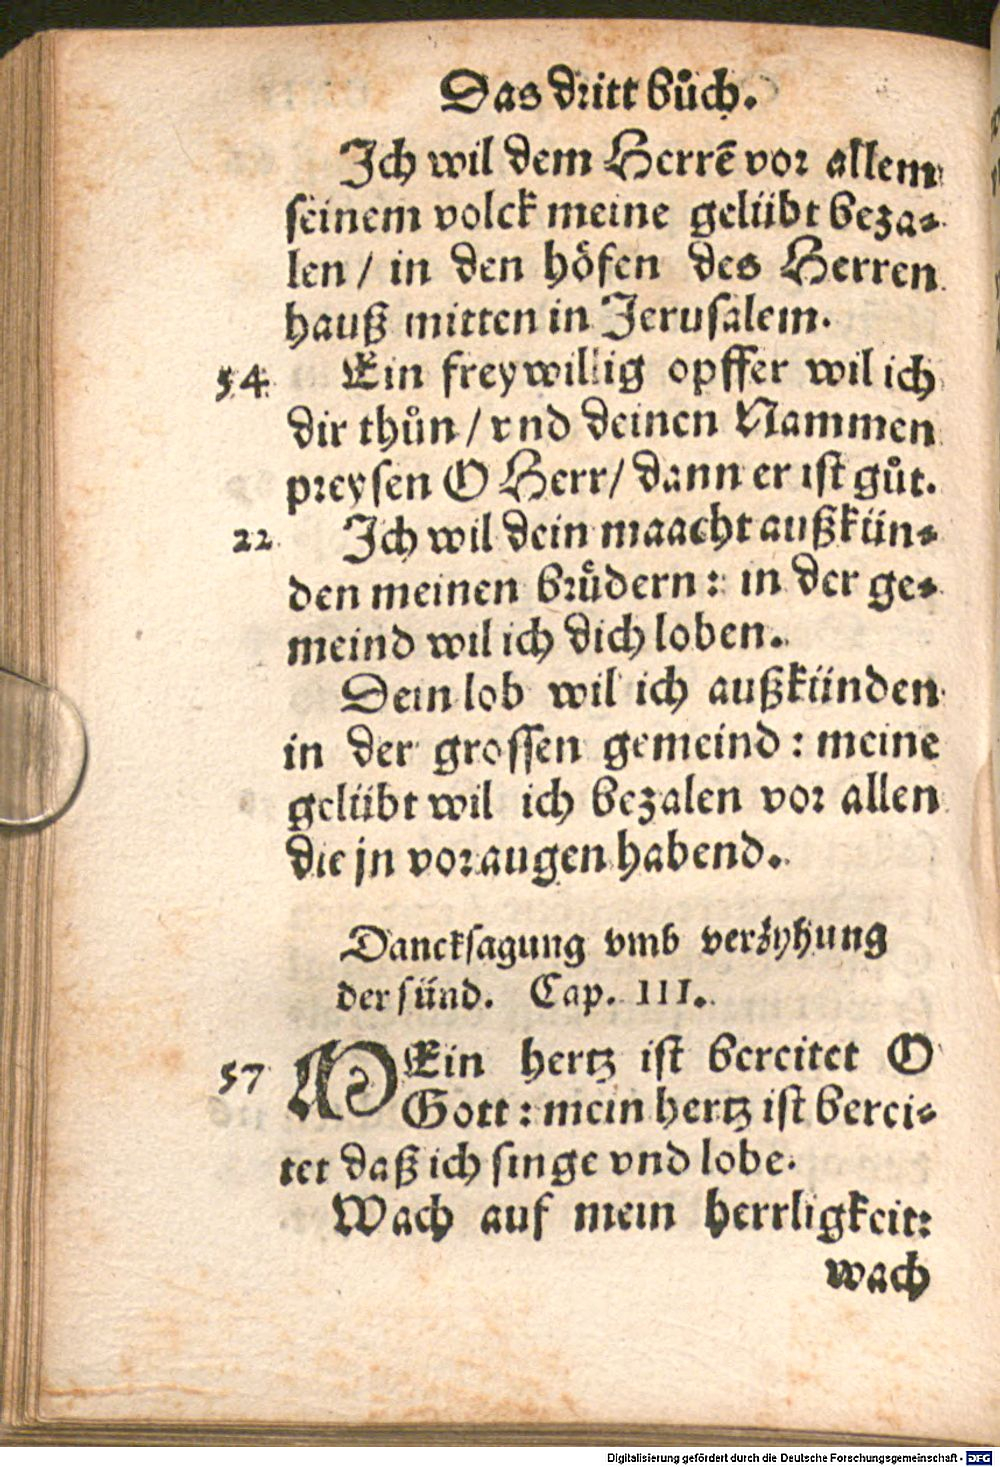 Das dritt bůch.
Ich wil dem Herrẽ vor allem
seinem volck meine gelübt beza⸗
len / in den höfen des Herren
hauß mitten in Jerusalem.
54 Ein freywillig opffer wil ich
dir thůn / vnd deinen Nammen
preysen O Herr / dann er ist gůt.
22 Ich wil dein maacht außkün⸗
den meinen brůdern: in der ge⸗
meind wil ich dich loben.
Dein lob wil ich außkünden
in der grossen gemeind: meine
gelübt wil ich bezalen vor allen
die jn vor augen habend.
Dancksagung vmb verzyhung
der sünd. Cap. III.
57 MEin hertz ist bereitet O
Gott: mein hertz ist berei⸗
tet daß ich singe vnd lobe.
Wach auf mein herrligkeit:
wach
Digitalisierung gefördert durch die Deutsche Forschungsgemeinschaft - DFG